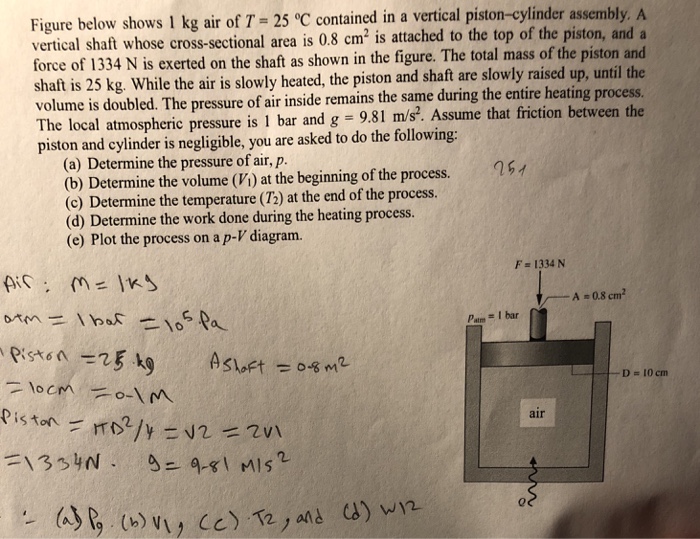 Figure below shows 1 kg air of T = 25 °C contained in a vertical piston–cylinder assembly. A
vertical shaft whose cross-sectional area is 0.8 cm² is attached to the top of the piston, and a
force of 1334 N is exerted on the shaft as shown in the figure. The total mass of the piston and
shaft is 25 kg. While the air is slowly heated, the piston and shaft are slowly raised up, until the
volume is doubled. The pressure of air inside remains the same during the entire heating process.
The local atmospheric pressure is 1 bar and g = 9.81 m/s². Assume that friction between the
piston and cylinder is negligible, you are asked to do the following:
(a) Determine the pressure of air, p.
(b) Determine the volume (V₁) at the beginning of the process.
(c) Determine the temperature (T₂) at the end of the process.
(d) Determine the work done during the heating process.
(e) Plot the process on a p-V diagram.
Air : m = 1kg
atm = 1 bar = 10⁵ Pa
Piston = 25 kg A shaft = 0.8 m²
= 10cm = 0.1 M
Piston = πD²/4 = V2 = 2V1
= 1334N . g = 9.81 M/s²
(b) V1, (c) T2, and (d) W12
F = 1334 N
A = 0.8 cm²
Patm = 1 bar
D = 10 cm
air